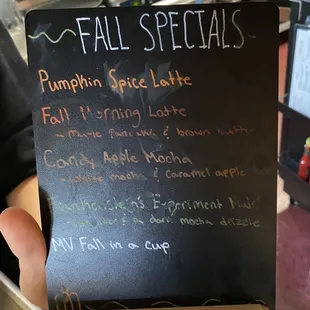 FALL SPECIALS
Pumpkin Spice Latte
Fall Morning Latte
& brown
Candy Apple Mocha
mocha & caramel apple
Experiment
& a dark mocha drizzle
MV Fall in a cup